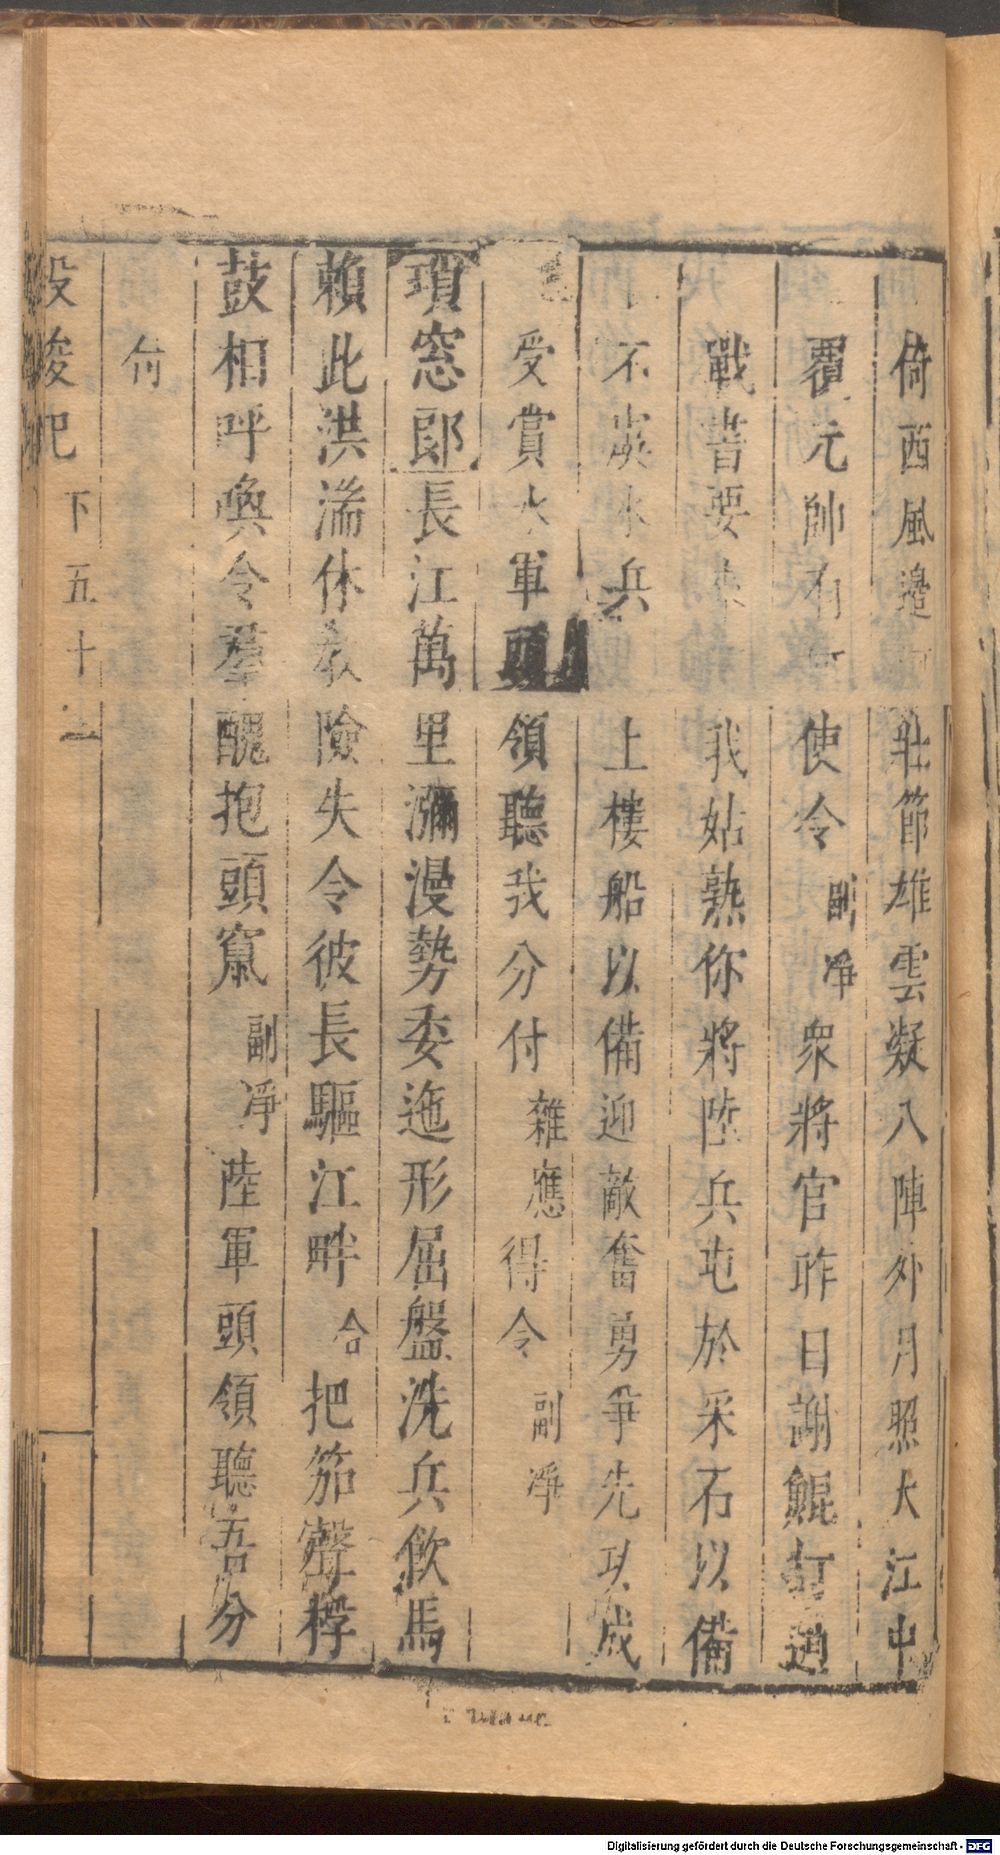 倚西風邊 壯節雄雲凝八陣外月照大江中
覆元帥有 使令副凈衆將官昨日謝鯤打通
戰書要 我姑熟你將陸兵屯於采石以備
不 水兵上樓船以備迎敵奮勇爭先以成
受賞水軍頭領聽我分付雜應得令副凈
瑣窓郎長江萬里瀰漫勢委迤形屈盤洗兵飲馬
賴此洪濤休教險失令彼長驅江畔合把笳聲桴
鼓相呼喚令羣醜抱頭竄副凈陸軍頭領聽吾分
付
投梭記 下五十
Digitalisierung gefördert durch die Deutsche Forschungsgemeinschaft - DFG